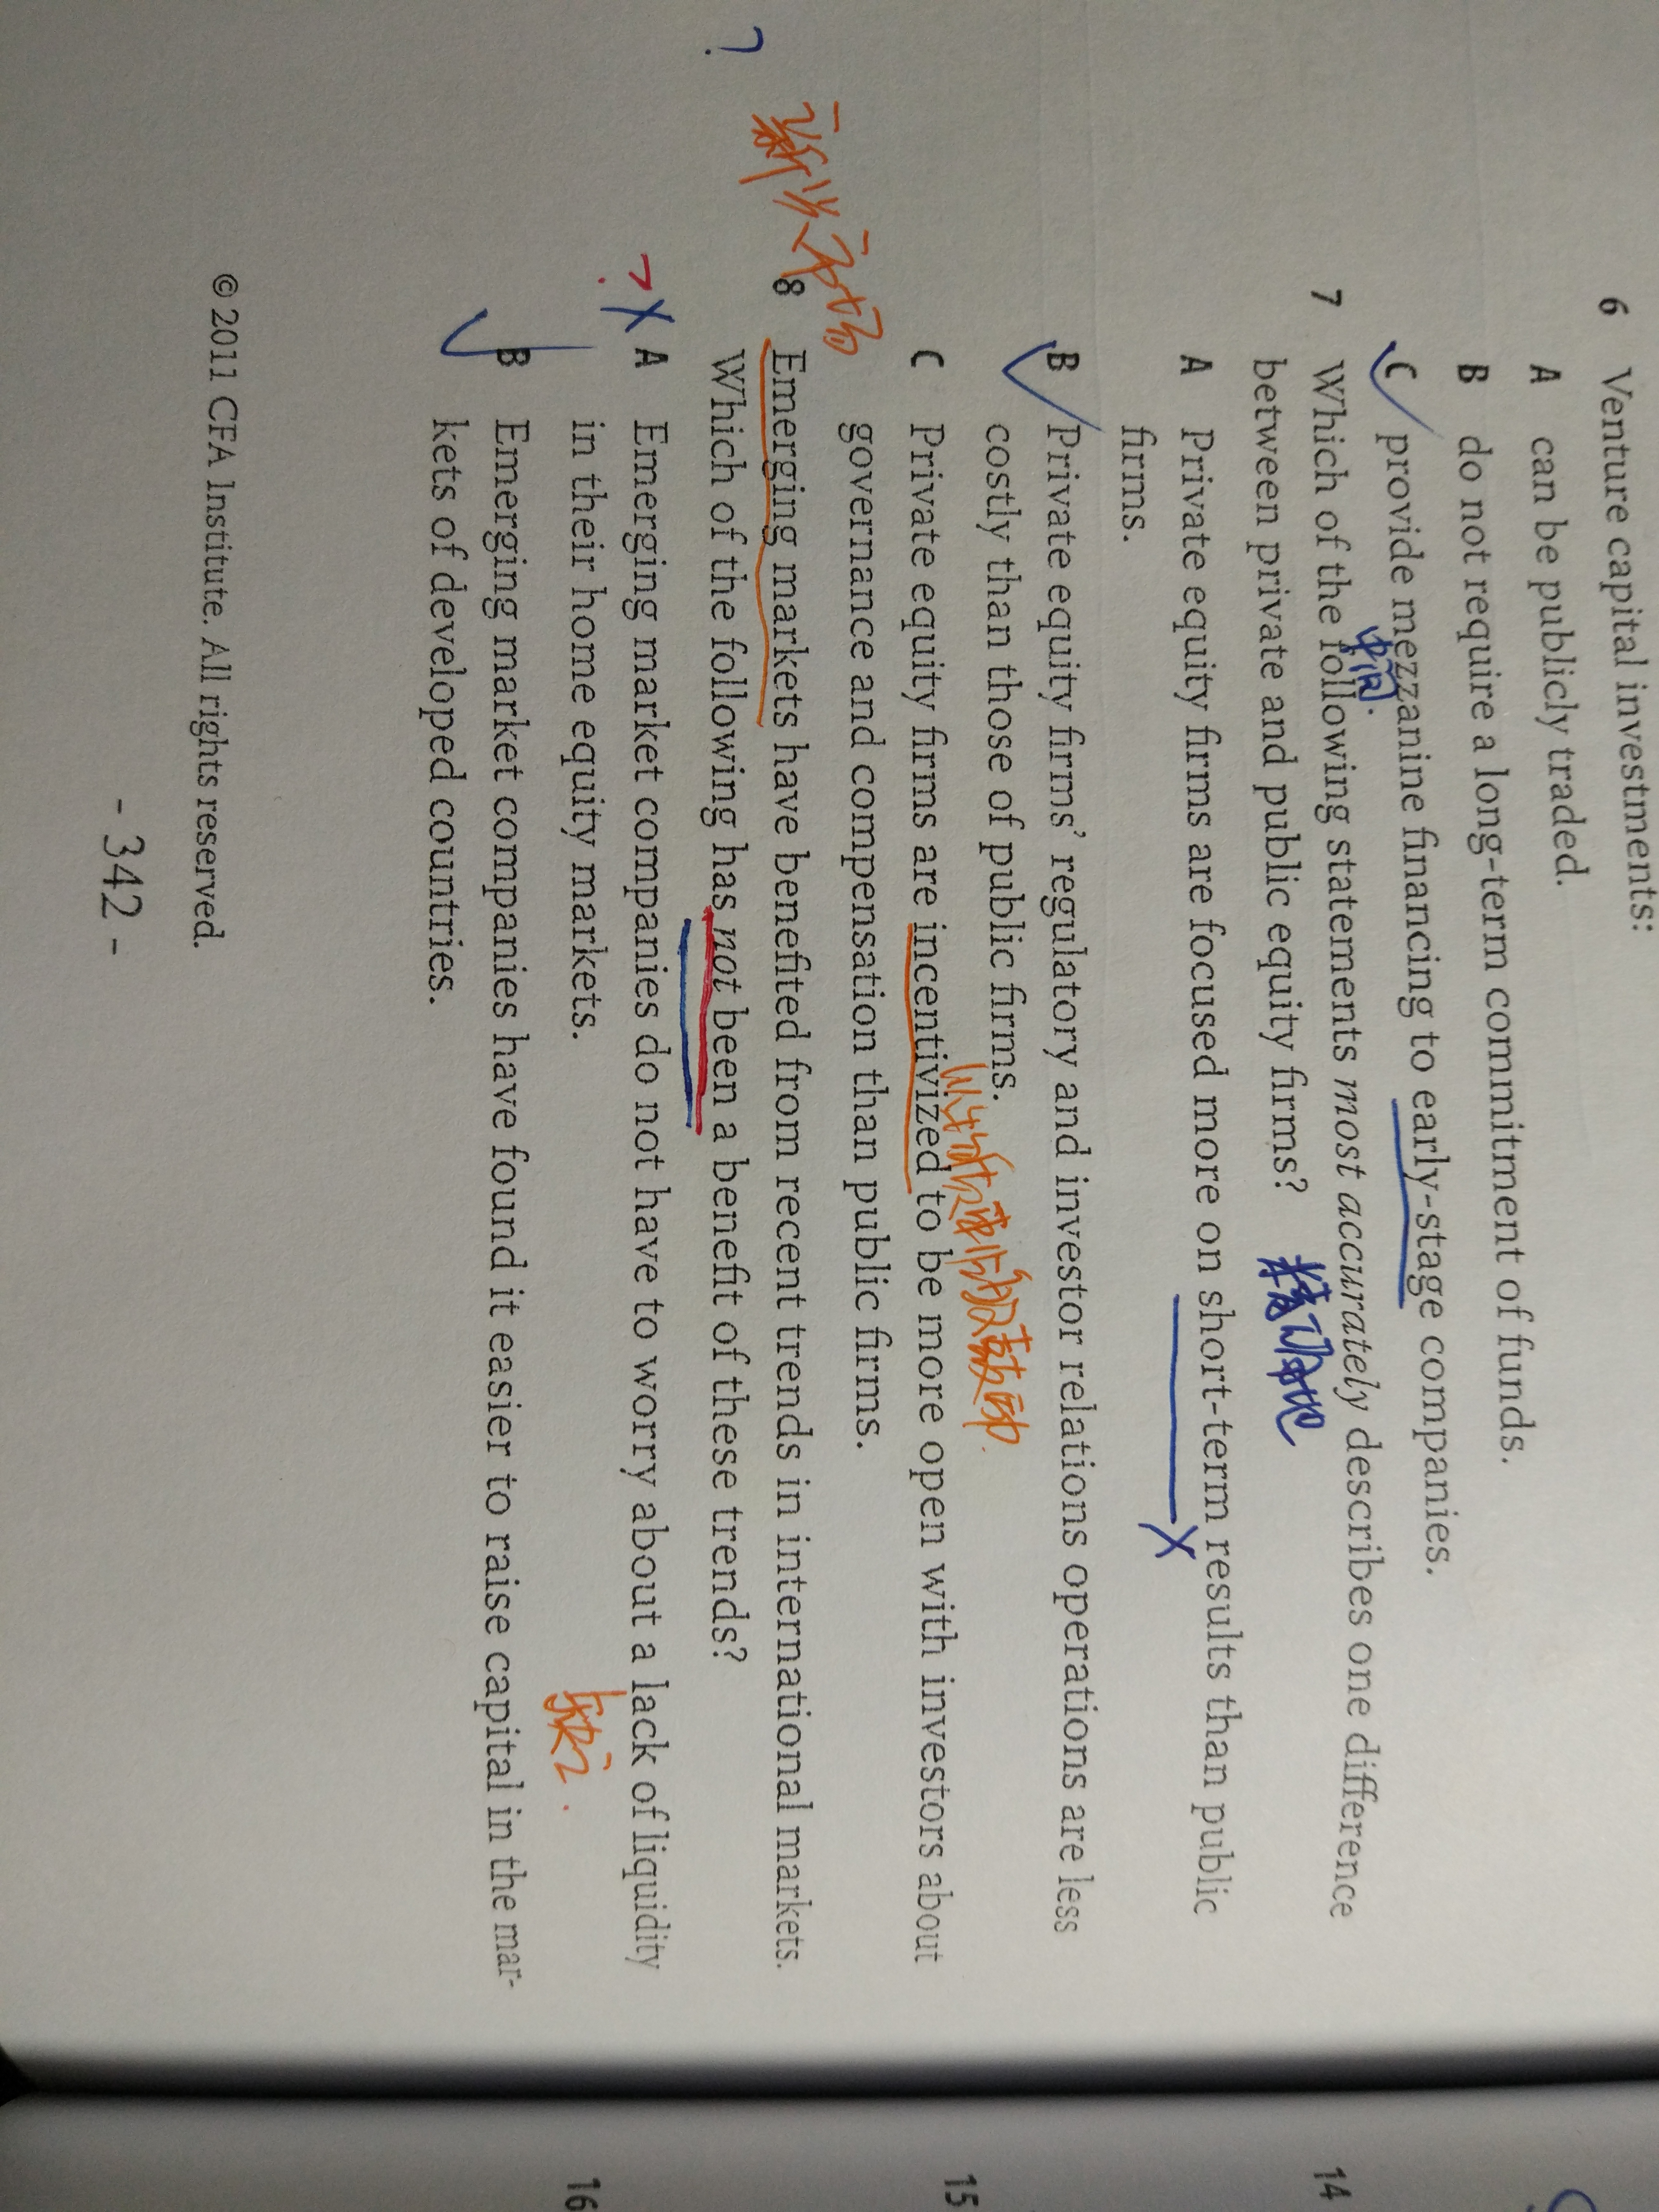 6 Venture capital investments:
A can be publicly traded.
B do not require a long-term commitment of funds.
C provide mezzanine financing to early-stage companies.
中间.
7 Which of the following statements most accurately describes one difference
between private and public equity firms? 精确地
A Private equity firms are focused more on short-term results than public
firms.
B Private equity firms' regulatory and investor relations operations are less
costly than those of public firms.
C Private equity firms are incentivized to be more open with investors about
governance and compensation than public firms.
新兴市场
8 Emerging markets have benefited from recent trends in international markets.
Which of the following has not been a benefit of these trends?
?
A Emerging market companies do not have to worry about a lack of liquidity
in their home equity markets.
缺乏.
?
B Emerging market companies have found it easier to raise capital in the mar-
kets of developed countries.
© 2011 CFA Institute. All rights reserved.
- 342 -
14
15
16